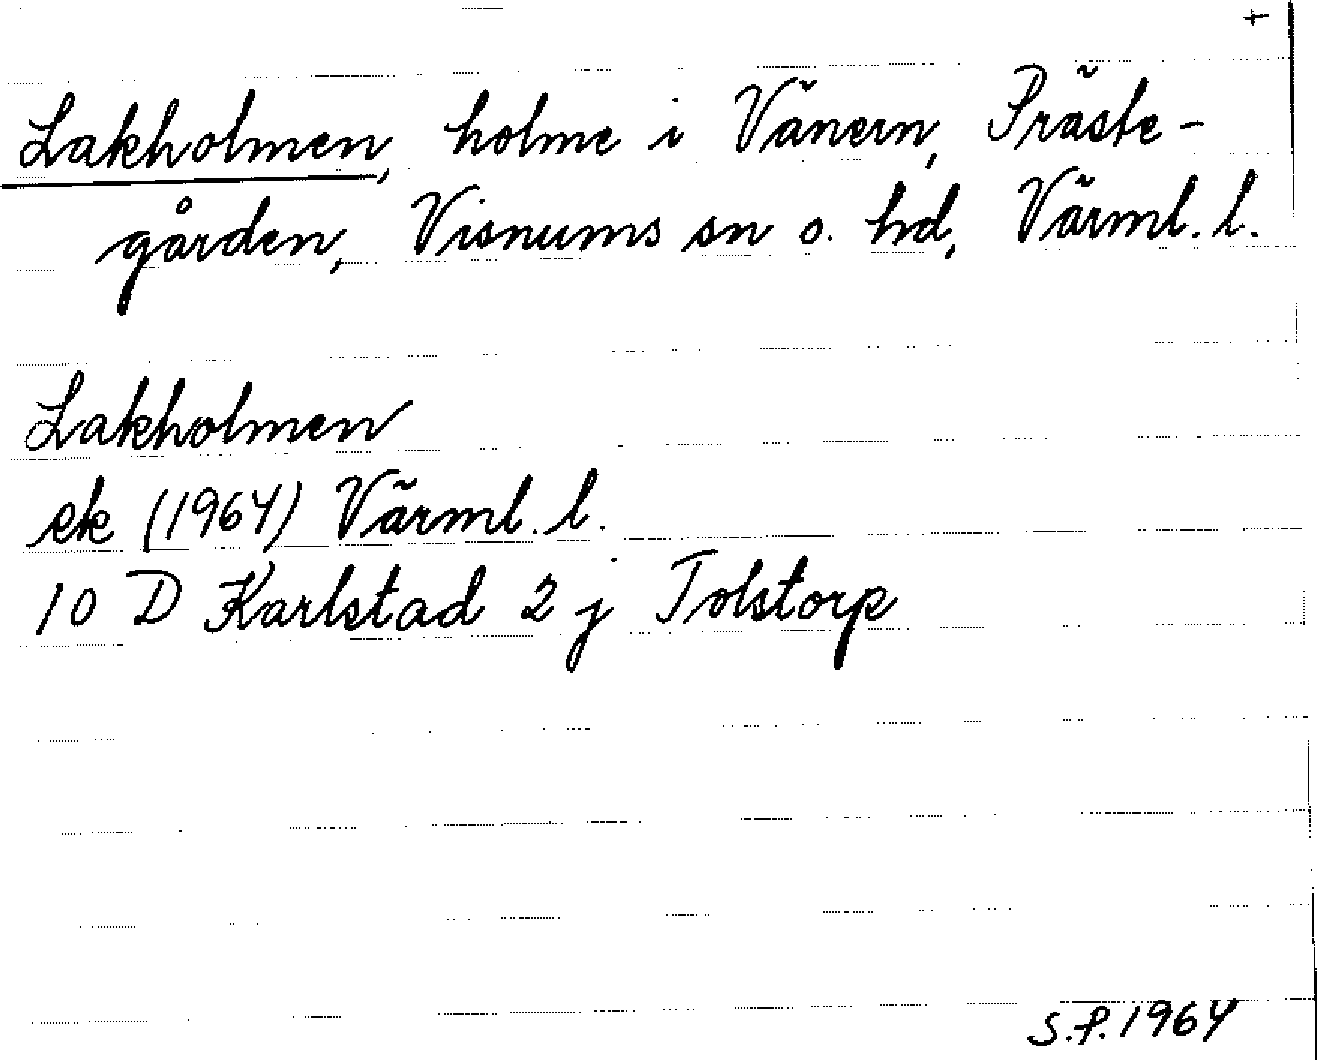 +
Lakholmen, holme i Vänern, Präste-
gården, Visnums sn o. hd, Värml. l.
Lakholmen
ek (1964) Värml. l.
10 D Karlstad 2 j Tolstorp
S.P. 1964